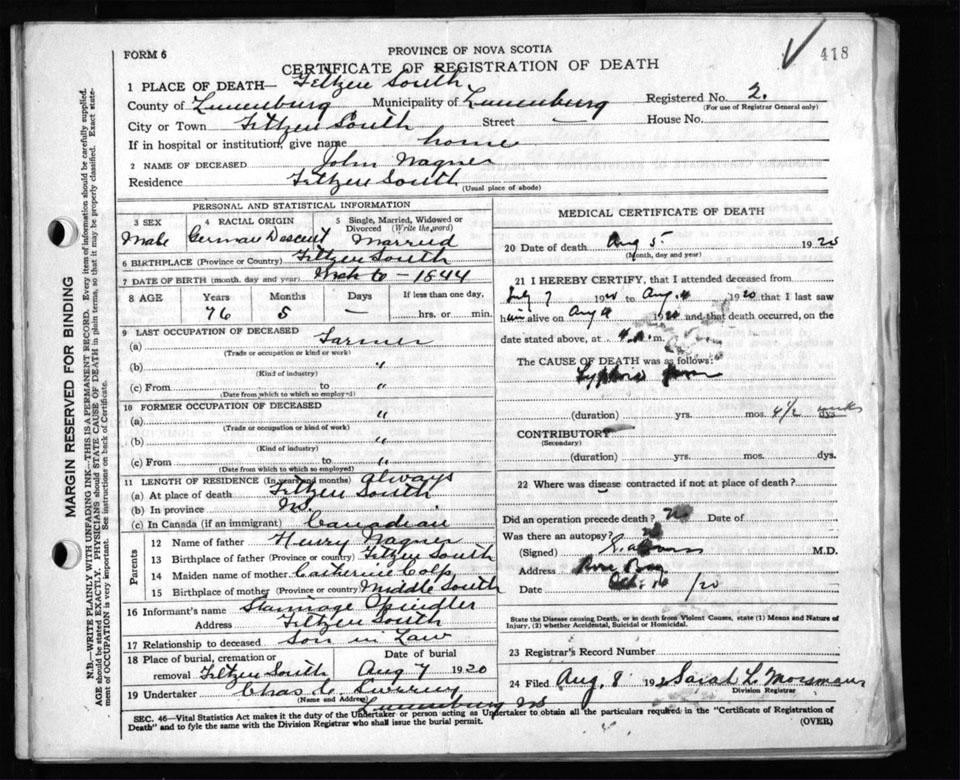 418
FORM 6
PROVINCE OF NOVA SCOTIA
CERTIFICATE OF REGISTRATION OF DEATH
1 PLACE OF DEATH— Feltzen South
County of Lunenburg Municipality of Lunenburg Registered No. 2.
(For use of Registrar General only)
City or Town Feltzen South Street — House No.
If in hospital or institution, give name home
2 NAME OF DECEASED John Wagner
Residence Feltzen South
(Usual place of abode)
MARGIN RESERVED FOR BINDING
N.B.—WRITE PLAINLY WITH UNFADING INK—THIS IS A PERMANENT RECORD. Every item of information should be carefully supplied.
AGE should be stated EXACTLY. PHYSICIANS should STATE CAUSE OF DEATH in plain terms, so that it may be properly classified. Exact statement of OCCUPATION is very important. See instructions on back of Certificate.
PERSONAL AND STATISTICAL INFORMATION
3 SEX 4 RACIAL ORIGIN 5 Single, Married, Widowed or Divorced (Write the word)
Male German Descent Married
6 BIRTHPLACE (Province or Country) Feltzen South
7 DATE OF BIRTH (month, day and year) 1844
8 AGE Years Months Days If less than one day,
76 5 — hrs. or min.
9 LAST OCCUPATION OF DECEASED
(a) Farmer
(Trade or occupation or kind or work)
(b) "
(Kind of industry)
(c) From to "
(Date from which to which so employed)
10 FORMER OCCUPATION OF DECEASED
(a) "
(Trade or occupation or kind of work)
(b) "
(Kind of industry)
(c) From to "
(Date from which to which so employed)
11 LENGTH OF RESIDENCE (In years and months) always
(a) At place of death Feltzen South
(b) In province N.S.
(c) In Canada (if an immigrant) Canadian
Parents
12 Name of father Henry Wagner
13 Birthplace of father (Province or country) Feltzen South
14 Maiden name of mother Catherine Colp
15 Birthplace of mother (Province or country) Middle South
16 Informant's name Stannage Spindler
Address Feltzen South
17 Relationship to deceased Son in Law
18 Place of burial, cremation or removal Feltzen South Date of burial Aug 7 1920
19 Undertaker Chas
(Name and Address) Lunenburg NS
MEDICAL CERTIFICATE OF DEATH
20 Date of death Aug 5 1920
(Month, day and year)
21 I HEREBY CERTIFY, that I attended deceased from
July 7 1920 to Aug 4 1920 that I last saw
him alive on Aug 4 1920 and that death occurred, on the
date stated above, at m.
The CAUSE OF DEATH was as follows:
Typhoid fever
(duration) yrs. mos. 4 1/2 weeks dys.
CONTRIBUTORY
(Secondary)
(duration) yrs. mos. dys.
22 Where was disease contracted if not at place of death?
Did an operation precede death? no Date of
Was there an autopsy? no
(Signed) M.D.
Address Rose Bay
Date Oct. 16 /20
State the Disease causing Death, or in death from Violent Causes, state (1) Means and Nature of Injury, (2) whether Accidental, Suicidal or Homicidal.
23 Registrar's Record Number
24 Filed Aug. 8 192 Sarah L Mossman
Division Registrar
SEC. 46—Vital Statistics Act makes it the duty of the Undertaker or person acting as Undertaker to obtain all the particulars required in the "Certificate of Registration of
Death" and to fyle the same with the Division Registrar who shall issue the burial permit. (OVER)